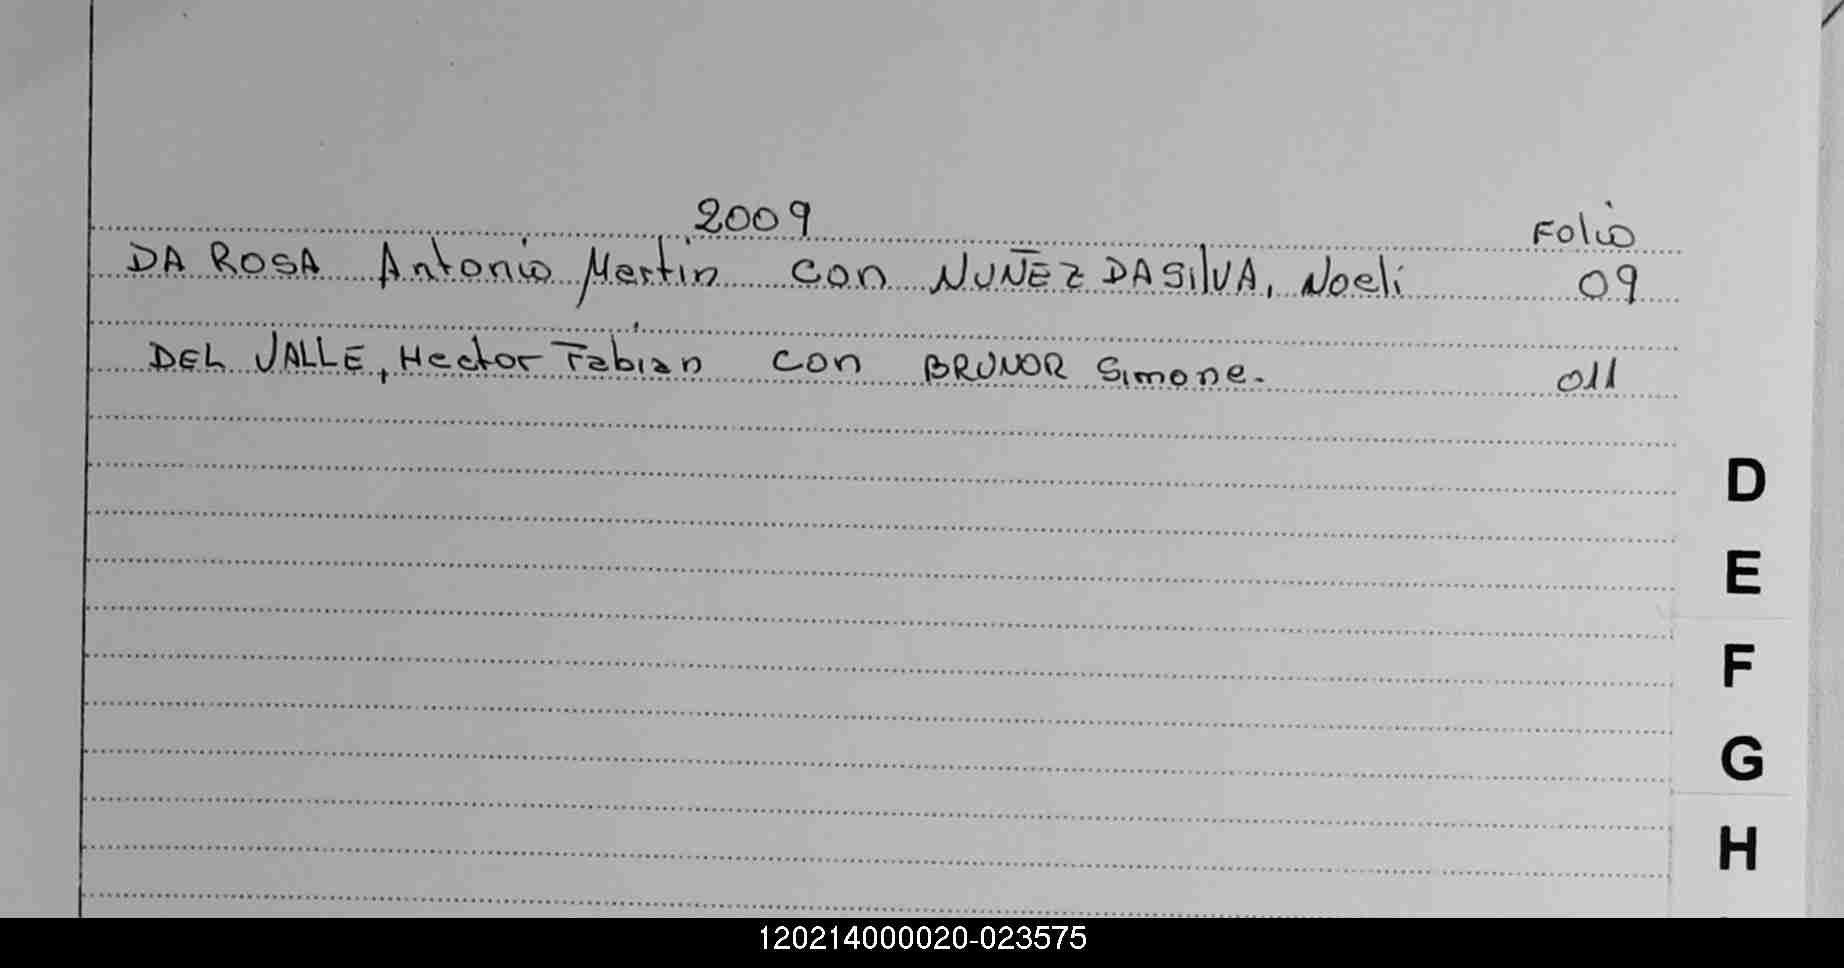 2009 Folio
DA ROSA Antonio Martin con NUÑEZ DA SilVA, Noeli 09
DEL VALLE, Hector Fabián con BRUNOR Simone. 011
D
E
F
G
H
120214000020-023575